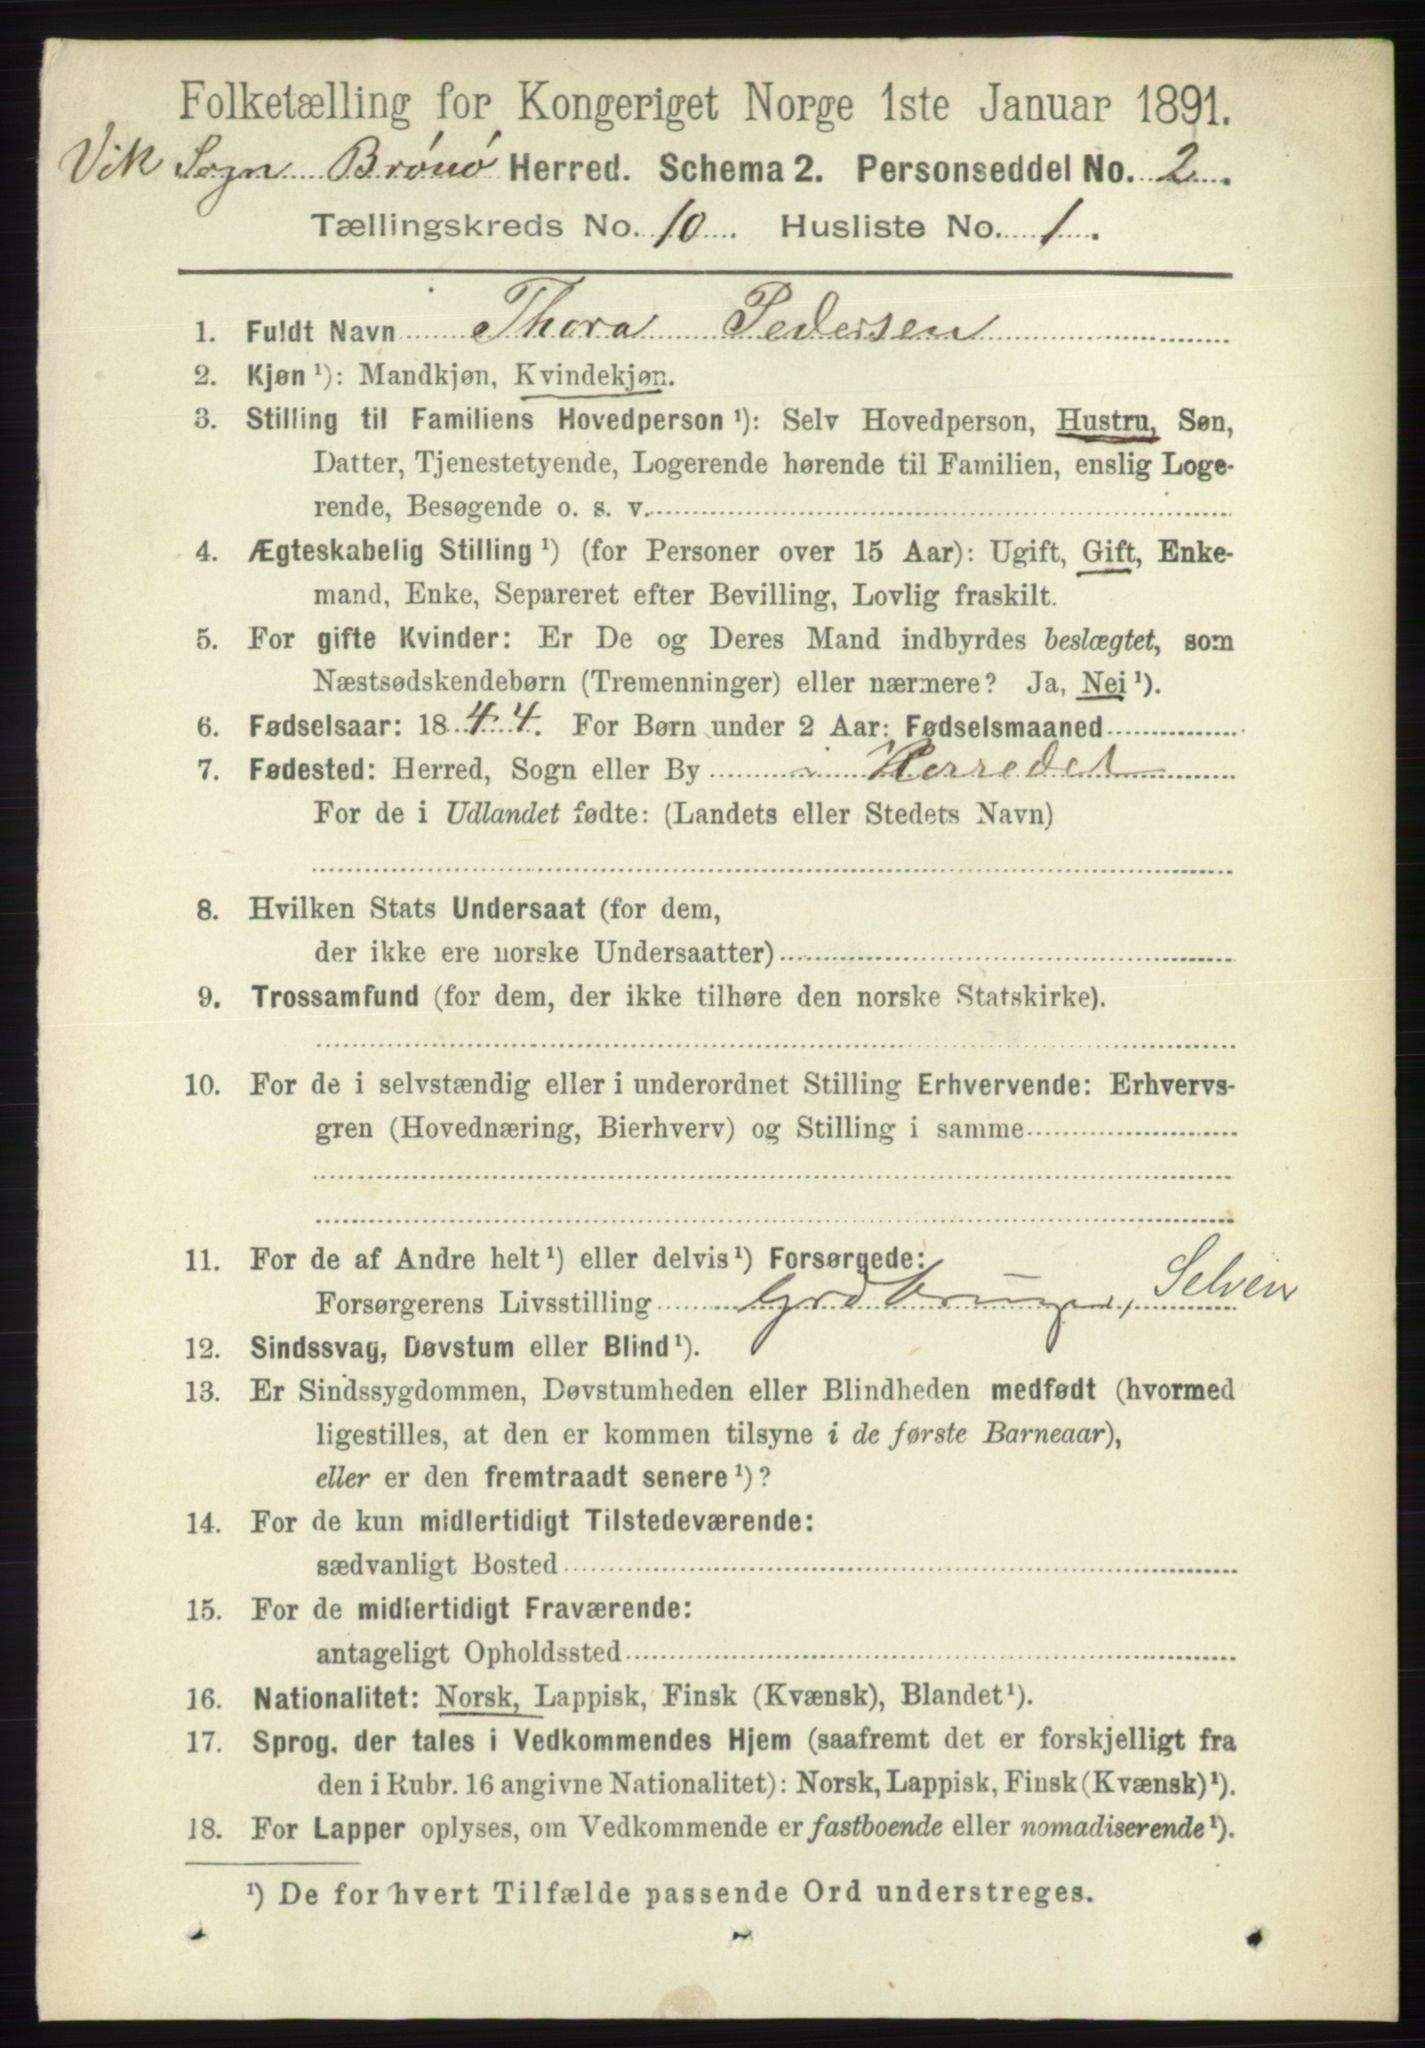 Folketælling for Kongeriget Norge 1ste Januar 1891.
Vik Sogn Brönö Herred. Schema 2. Personseddel No. 2.
Tællingskreds No. 10. Husliste No. 1.
1. Fuldt Navn Thora Pedersen
2. Kjøn ¹): Mandkjøn, Kvindekjøn.
3. Stilling til Familiens Hovedperson ¹): Selv Hovedperson, Hustru, Søn,
Datter, Tjenestetyende, Logerende hørende til Familien, enslig Loge-
rende, Besøgende o. s. v.
4. Ægteskabelig Stilling ¹) (for Personer over 15 Aar): Ugift, Gift, Enke-
mand, Enke, Separeret efter Bevilling, Lovlig fraskilt.
5. For gifte Kvinder: Er De og Deres Mand indbyrdes beslægtet, som
Næstsødskendebørn (Tremenninger) eller nærmere? Ja, Nei ¹).
6. Fødselsaar: 1844. For Børn under 2 Aar: Fødselsmaaned
7. Fødested: Herred, Sogn eller By i Herredet
For de i Udlandet fødte: (Landets eller Stedets Navn)
8. Hvilken Stats Undersaat (for dem,
der ikke ere norske Undersaatter)
9. Trossamfund (for dem, der ikke tilhøre den norske Statskirke).
10. For de i selvstændig eller i underordnet Stilling Erhvervende: Erhvervs-
gren (Hovednæring, Bierhverv) og Stilling i samme
11. For de af Andre helt ¹) eller delvis ¹) Forsørgede:
Forsørgerens Livsstilling Grdbruger, Selveier
12. Sindssvag, Døvstum eller Blind ¹).
13. Er Sindssygdommen, Døvstumheden eller Blindheden medfødt (hvormed
ligestilles, at den er kommen tilsyne i de første Barneaar),
eller er den fremtraadt senere ¹)?
14. For de kun midlertidigt Tilstedeværende:
sædvanligt Bosted
15. For de midlertidigt Fraværende:
antageligt Opholdssted
16. Nationalitet: Norsk, Lappisk, Finsk (Kvænsk), Blandet ¹).
17. Sprog, der tales i Vedkommendes Hjem (saafremt det er forskjelligt fra
den i Rubr. 16 angivne Nationalitet): Norsk, Lappisk, Finsk (Kvænsk) ¹).
18. For Lapper oplyses, om Vedkommende er fastboende eller nomadiserende ¹).
¹) De for hvert Tilfælde passende Ord understreges.